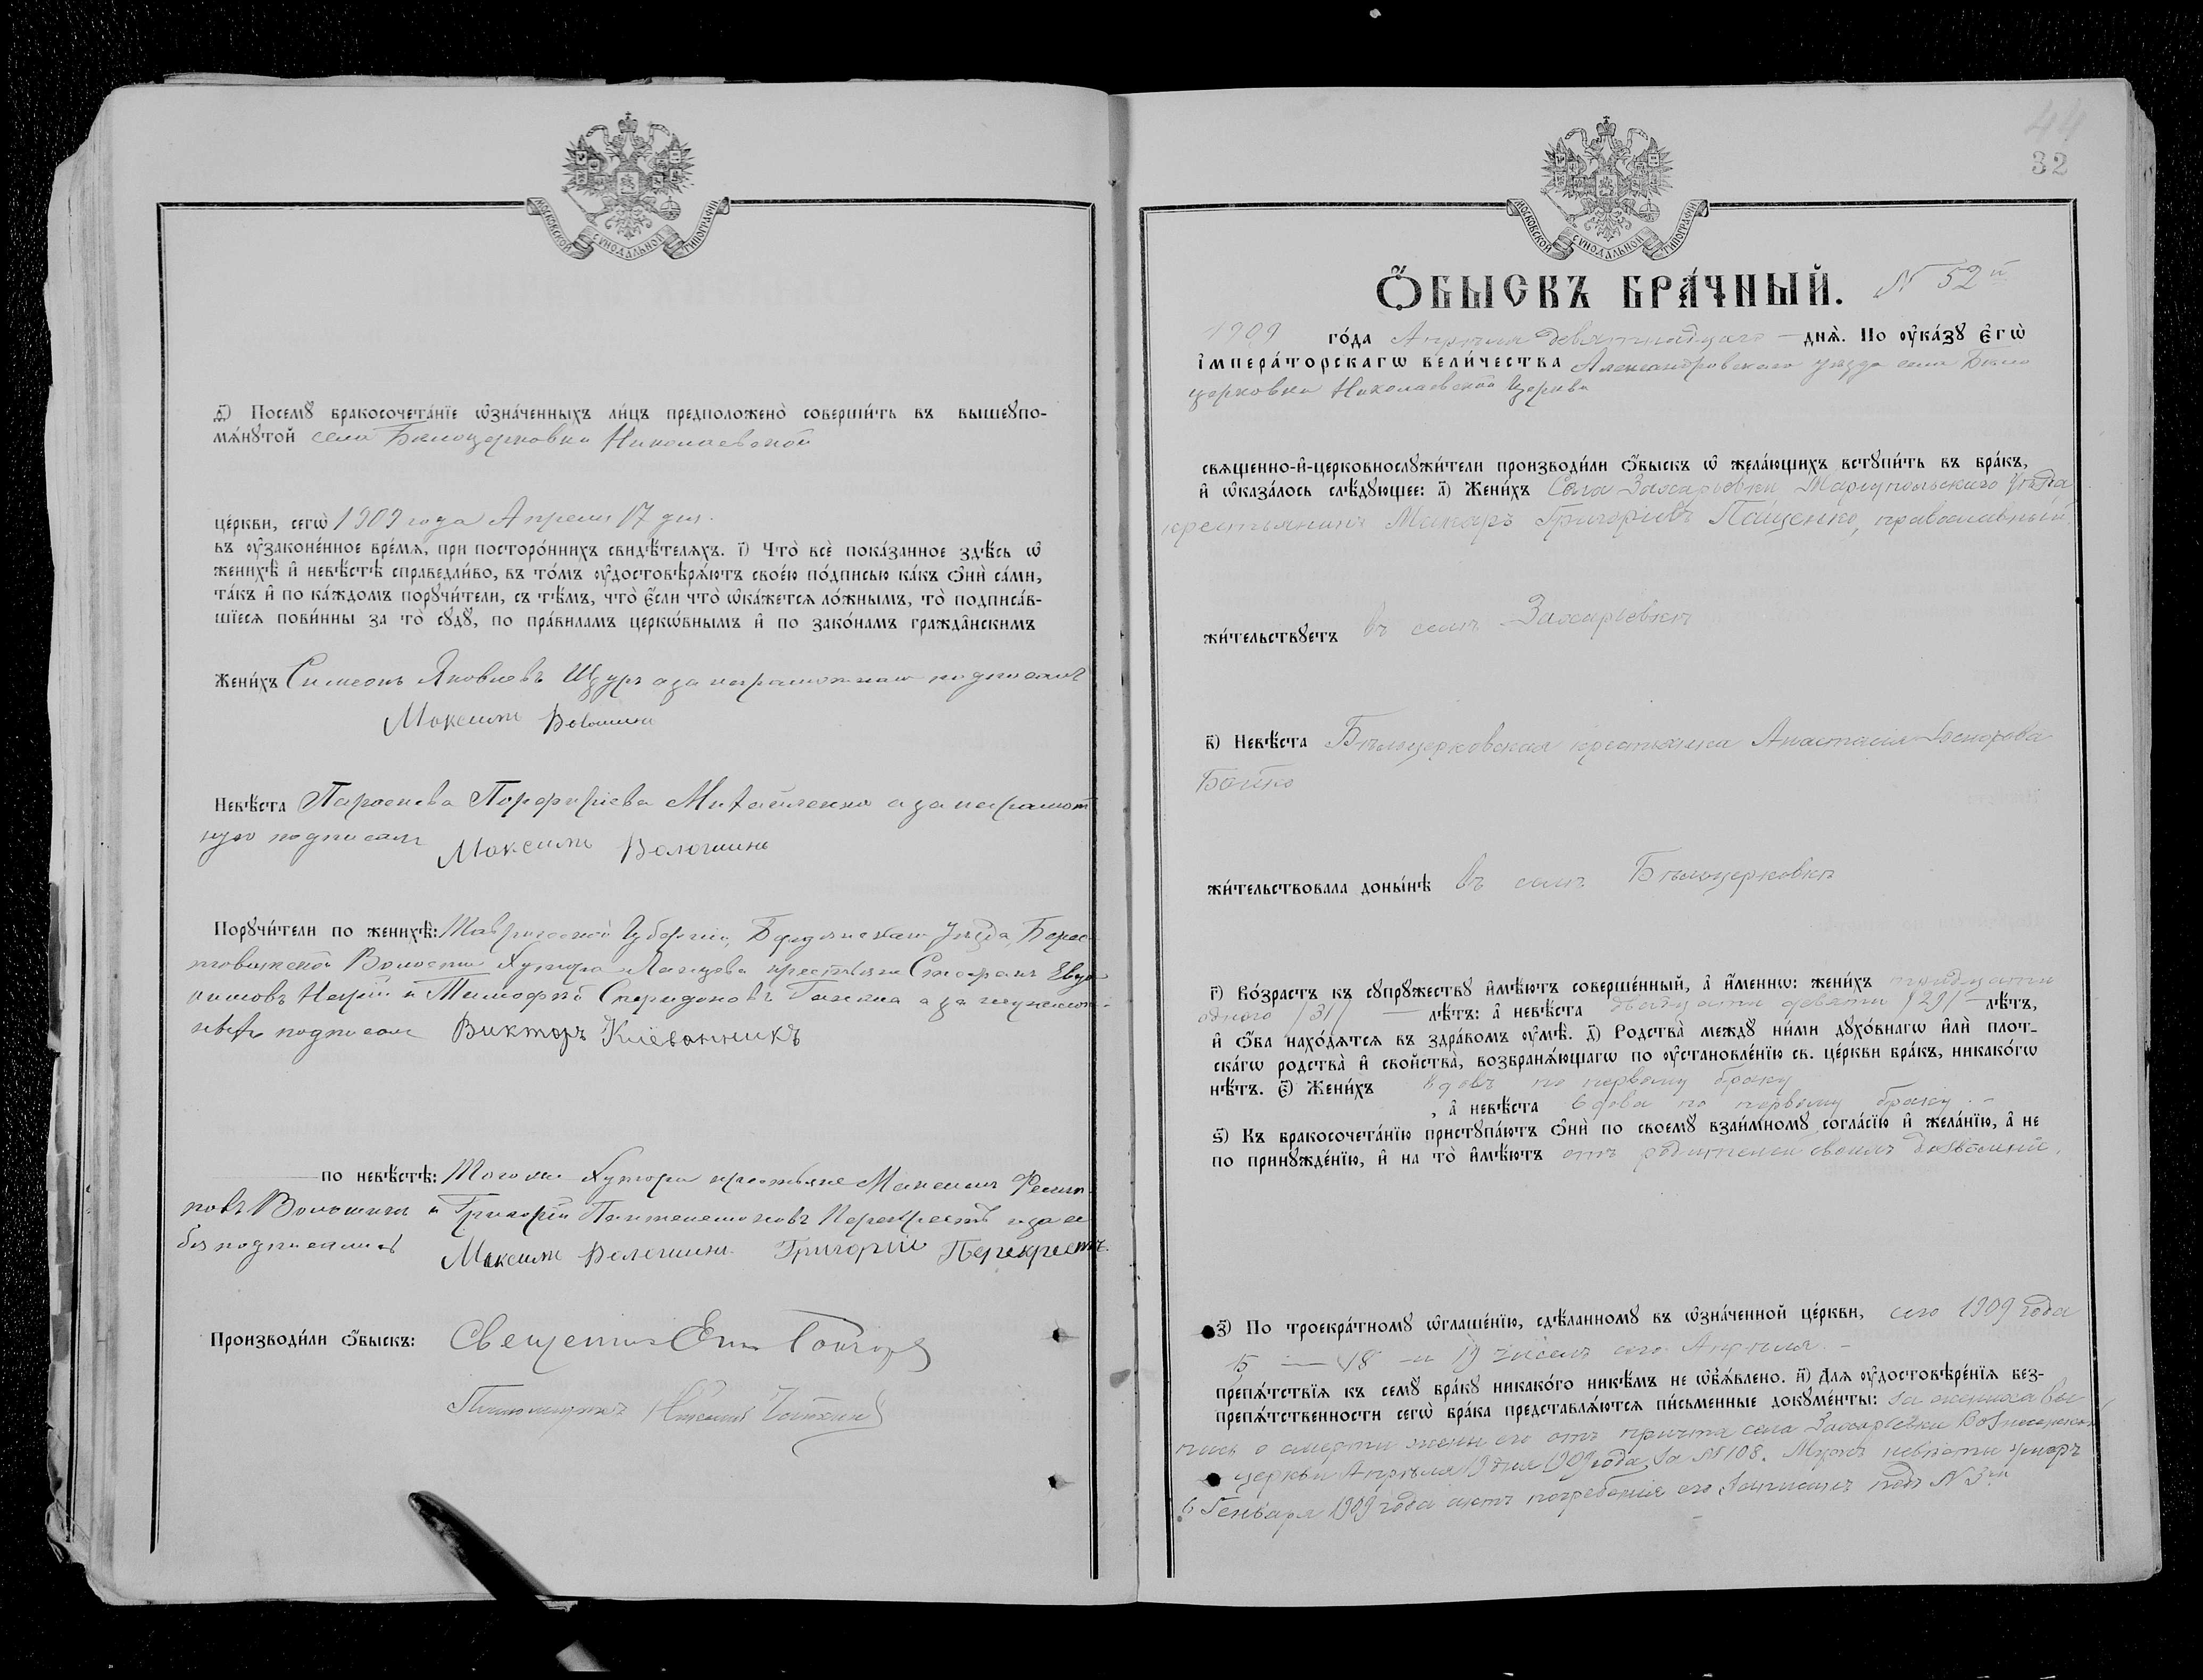 МОСКОВСКОЙ СѴНОДАЛЬНОЙ ТИПОГРАФІИ
Посемꙋ бракосочета́нїе ѡ҆зна́ченныхъ ли́цъ предположено̀ соверши́ть въ вышеꙋпо-
мѧ́нꙋтой села Белоцерковки Николаевской
це́ркви, сегѡ̀ 1909 года Апреля 17 дня.
въ ѹ҆законе́нное вре́мѧ, при посторо́ннихъ свидѣ́телѧхъ. і҃) Что̀ всѐ пока́занное здѣ́сь ѡ҆
женихѣ̀ и҆ невѣ́стѣ справедли́во, въ то́мъ ѹ҆достовѣрѧ́ютъ свое́ю по́дписью ка́къ ѻ҆нѝ са́ми,
та́къ и҆ по ка́ждомъ порꙋчи́тели, съ тѣ́мъ, что̀ є҆́сли что̀ ѡ҆ка́жетсѧ ло́жнымъ, то̀ подписа́в-
шїесѧ пови́нны за то̀ сꙋдꙋ̀, по пра́виламъ церко́внымъ и҆ по зако́намъ гражда̂нскимъ
Жени́хъ Симеонъ Яковлевъ Щуръ а за неграмотнаго подписалъ
Максимъ Волошинъ
Невѣ́ста Порфиріева Михайленко а за неграмот
ную подписалъ Максимъ Волошинъ
Порꙋчи́тели по женихѣ̀: Таврической Губерніи, Бердянскаго Уѣзда, Берес-
товижской Волости Хутора крестьяне Стефанъ Евдо
кимовъ и Тимофей Спиридоновъ а за
подписалъ Викторъ Клеванникъ
по невѣ́стѣ: Того же Хутора крестьяне Максимъ Филип
повъ Волошинъ и Григорій Перекрестъ и за се
бя подписались Максимъ Волошинъ Григорій Перекрестъ.
Производи́ли ѻ҆́быскъ: Священникъ
Псаломщикъ
44
32
МОСКОВСКОЙ СѴНОДАЛЬНОЙ ТИПОГРАФІИ
Ѻ҆́БЫСКЪ БРА́ЧНЫЙ. N 52й
1909 го́да Апрѣля девятнадцаго днѧ̀. По ѹ҆ка́зꙋ Є҆гѡ̀
і҆мпера́торскагѡ вели́чества Александровскаго уѣзда села Бело
церковки Николаевской Церкви
свѧще́нно-и҆-церковнослꙋжи́тели производи́ли ѻ҆́быскъ ѡ҆ жела́ющихъ встꙋпи́ть въ бра́къ,
и҆ ѡ҆каза́лось слѣ́дꙋющее: а҃) Жени́хъ Села Захарьевки Маріупольскаго Уѣзда
крестьянинъ Макаръ Григоріевъ Пащенко, православный.
жи́тельствꙋетъ въ селѣ Захарьевкѣ
в҃) Невѣ́ста Бѣлоцерковская крестьянка Анастасія
Бойко
жи́тельствовала доны́нѣ въ селѣ Бѣлоцерковкѣ
г҃) Во́зрастъ къ сꙋпрꙋ́жествꙋ и҆мѣ́ютъ соверше́нный, а҆ и҆́меннѡ: жени́хъ тридцати
одного /31/ лѣ́тъ: а҆ невѣ́ста двадцати девяти /29/ лѣ́тъ,
и҆ ѻ҆́ба нахо́дѧтсѧ въ здра́вомъ ѹ҆мѣ̀. д҃) Родства̀ междꙋ̀ ни́ми дꙋхо́внагѡ и҆лѝ плот-
ска́гѡ родства̀ и҆ свойства̀, возбранѧ́ющагѡ по ѹ҆становле́нїю св. це́ркви бра́къ, никако́гѡ
нѣ́тъ. є҃) Жени́хъ вдовъ по первому браку
, а҆ невѣ́ста вдова по первому браку.
ѕ҃) Къ бракосочета́нїю пристꙋпа́ютъ ѻ҆нѝ по своемꙋ̀ взаи́мномꙋ согла́сїю и҆ жела́нїю, а҆ не
по принꙋжде́нїю, и҆ на то̀ и҆мѣ́ютъ отъ родителей своихъ дозволеніе.
з҃) По троекра́тномꙋ ѡ҆глаше́нїю, сдѣ́ланномꙋ въ ѡ҆зна́ченной це́ркви, сего 1909 года
15 — 18 и 19 чиселъ сего Апрѣля.
препѧ́тствїѧ къ семꙋ̀ бра́кꙋ никако́го никѣ́мъ не ѡ҆б̾ѧ́влено. и҃) Длѧ ѹ҆достовѣре́нїѧ без-
препѧ́тственности сегѡ̀ бра́ка представлѧ́ютсѧ пи́сьменные докꙋме́нты: за жениха вы
пись о смерти жены его отъ причта села Захарьевки Вознесенской
церкви Апрѣля 19 дня 1909 года за № 108. Мужъ невѣсты умеръ
6 Генваря 1909 года актъ погребенія его записанъ подъ N 3мъ